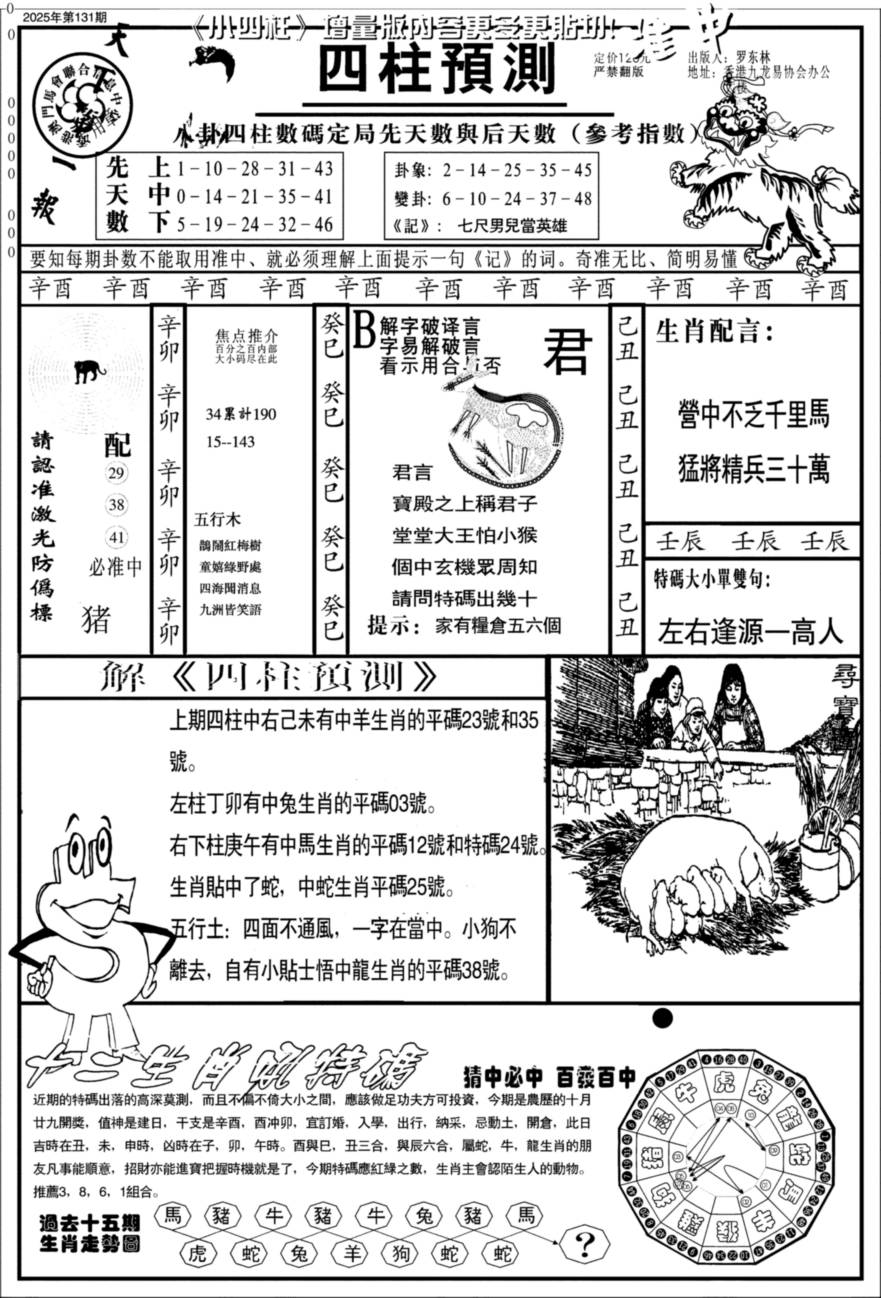 2025年第131期
《小四柱》增量版內容更多更貼切!
逢中
天一報
港澳門馬會聯合信息中
四柱預測
定价120元
严禁翻版
出版人：罗东林
地址：香港九龙易协会办公
八卦四柱數碼定局先天數與后天數（參考指數）
先天數
上 1－10－28－31－43
中 0－14－21－35－41
下 5－19－24－32－46
卦象: 2－14－25－35－45
變卦: 6－10－24－37－48
《記》: 七尺男兒當英雄
要知每期卦数不能取用准中、就必须理解上面提示一句《记》的词。奇准无比、简明易懂
辛酉 辛酉 辛酉 辛酉 辛酉 辛酉 辛酉 辛酉 辛酉 辛酉 辛酉
請認准激光防僞標
配
29
38
41
必准中
猪
辛卯 辛卯 辛卯 辛卯 辛卯
焦点推介
百分之百内部
大小码尽在此
34累計190
15--143
五行木
鵲鬧紅梅樹
童嬉綠野處
四海聞消息
九洲皆笑語
癸巳 癸巳 癸巳 癸巳 癸巳
B
解字破译言
字易解破言
看示用合与否
君
君言
寶殿之上稱君子
堂堂大王怕小猴
個中玄機眾周知
請問特碼出幾十
提示: 家有糧倉五六個
己丑 己丑 己丑 己丑 己丑
生肖配言:
營中不乏千里馬
猛將精兵三十萬
壬辰 壬辰 壬辰
特碼大小單雙句:
左右逢源一高人
解《四柱預測》
上期四柱中右己未有中羊生肖的平碼23號和35
號。
左柱丁卯有中兔生肖的平碼03號。
右下柱庚午有中馬生肖的平碼12號和特碼24號。
生肖貼中了蛇，中蛇生肖平碼25號。
五行土：四面不通風，一字在當中。小狗不
離去，自有小貼士悟中龍生肖的平碼38號。
尋寶
十二生肖配特碼
猜中必中 百發百中
近期的特碼出落的高深莫測，而且不偏不倚大小之間，應該做足功夫方可投資，今期是農歷的十月
廿九開獎，值神是建日，干支是辛酉，酉冲卯，宜訂婚，入學，出行，納采，忌動土，開倉，此日
吉時在丑，未，申時，凶時在子，卯，午時。酉與巳，丑三合，與辰六合，屬蛇，牛，龍生肖的朋
友凡事能順意，招財亦能進寶把握時機就是了，今期特碼應紅綠之數，生肖主會認陌生人的動物。
推薦3，8，6，1組合。
過去十五期
生肖走勢圖
馬 豬 牛 豬 牛 兔 豬 馬
虎 蛇 兔 羊 狗 蛇 蛇
?
虎 兔 龍 蛇 馬 羊 猴 雞 狗 豬 鼠 牛